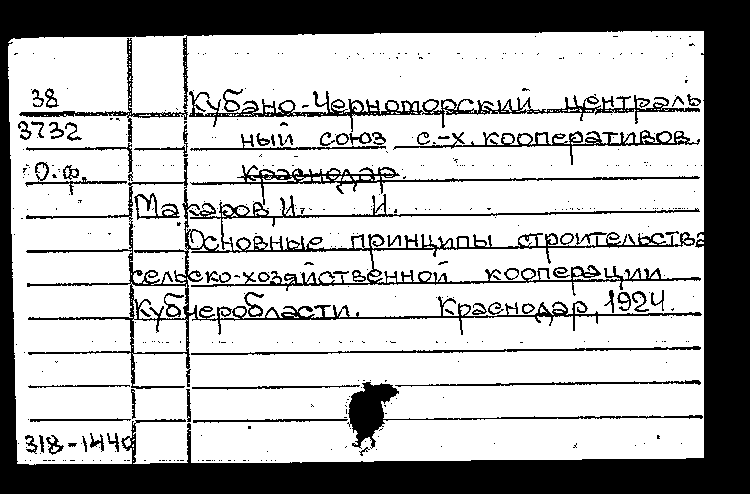 38 Кубано-Черноморский централь
3732 ный союз с.-х. кооперативов.
О.ф. Краснодар.
Макаров, И. И.
Основные принципы строительства
сельско-хозяйственной кооперации
Кубчеробласти. Краснодар, 1924.
318-1440